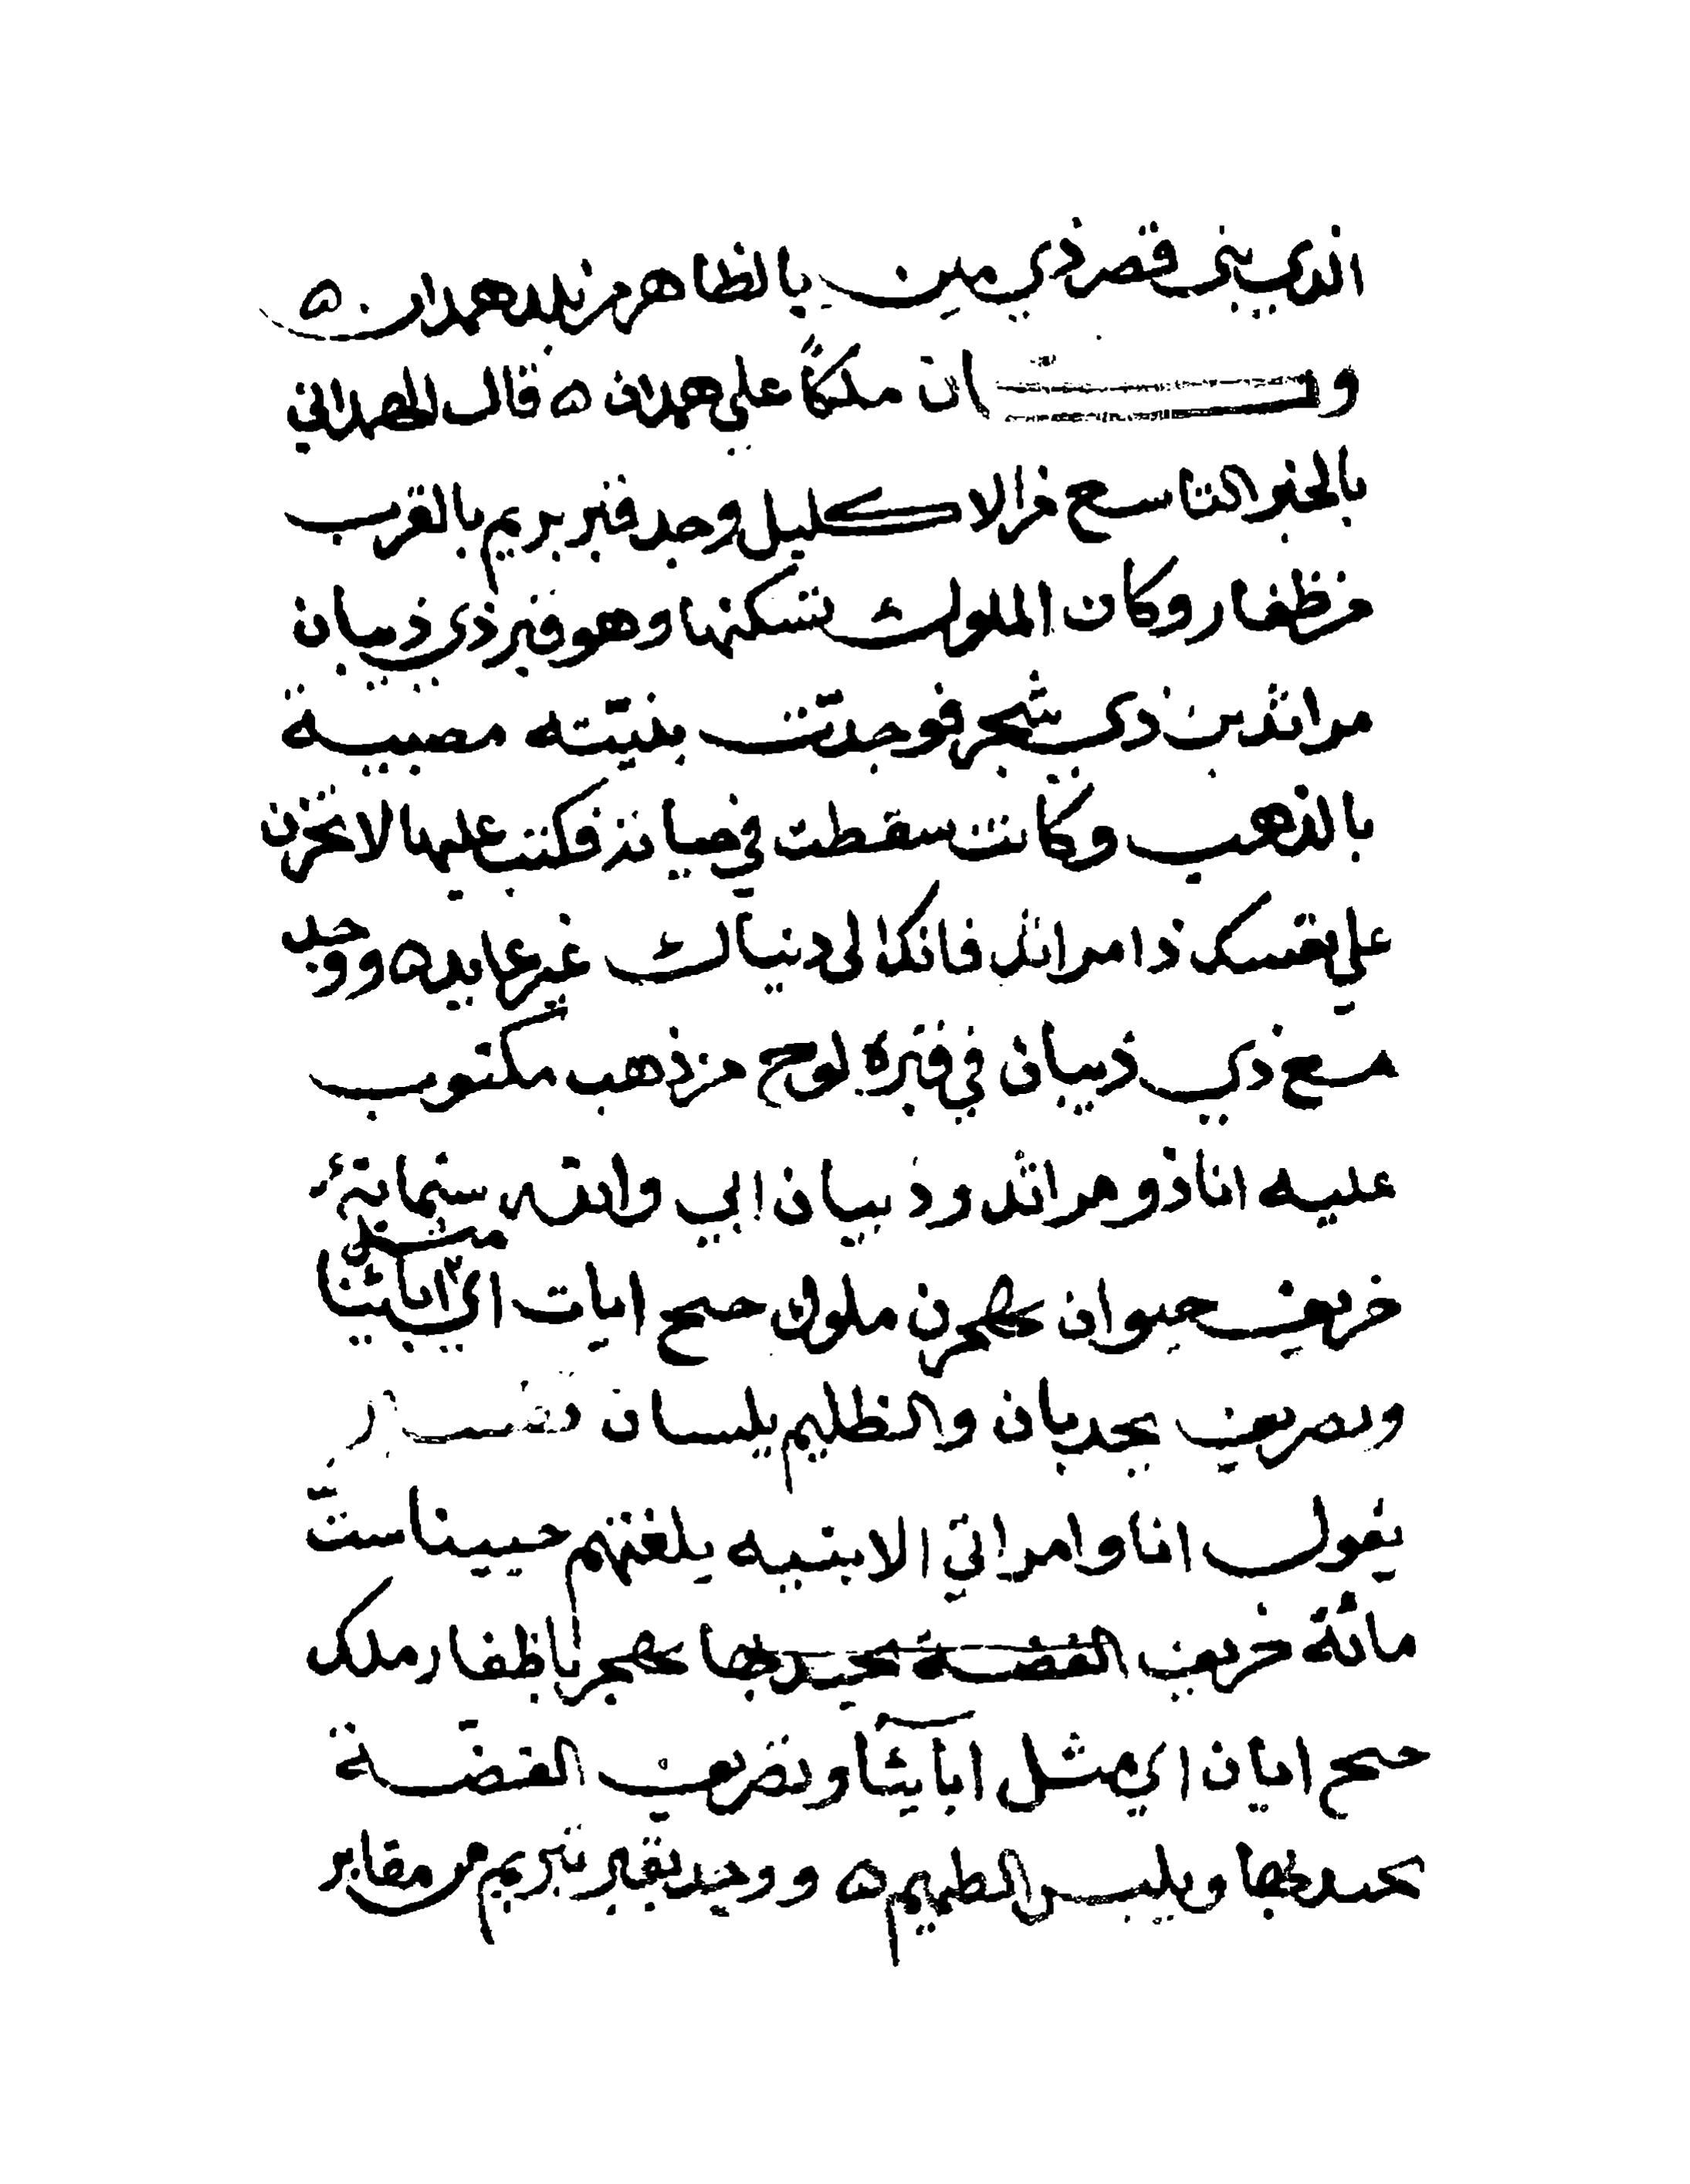 الذي بنى قصر ذي مين بالظاهر من بلد همدان ٥
وكان ملكًا على همدان ٥ قال الهمداني
بالجزء التاسع من الاكليل وجد قبر بريم بالقرب
من ظفار وكان الملوك تسكنها وهو قبر ذي ذبيان
مراثد بن ذي شجر فوجدت بنيته مصبية
بالذهب وكانت سقطت في فكتب عليها لا تحزن
علي نفسك ذا مراثد فانك الى دنياك غير عايد ٥ ووجد
مع ذي ذيبان في قبره لوح من ذهب مكتوب
عليه انا ذو مراثد وذبيان ابي وامراته ستمائة
خريف حيوان بهجرن ملوك حمح ابات اي مثل ابائنا
ونصريف بجديان والظليم يلبسان
يقول انا وامراتي الابنيه بلغتهم حيينا ستّ
مائة خريف بهجرنا ظفار ملك
حمح ابان اي مثل ابآئنا ونصريف الفضة
ويلبس الظليم ٥ ووجد بقبر بتريم من مقابر